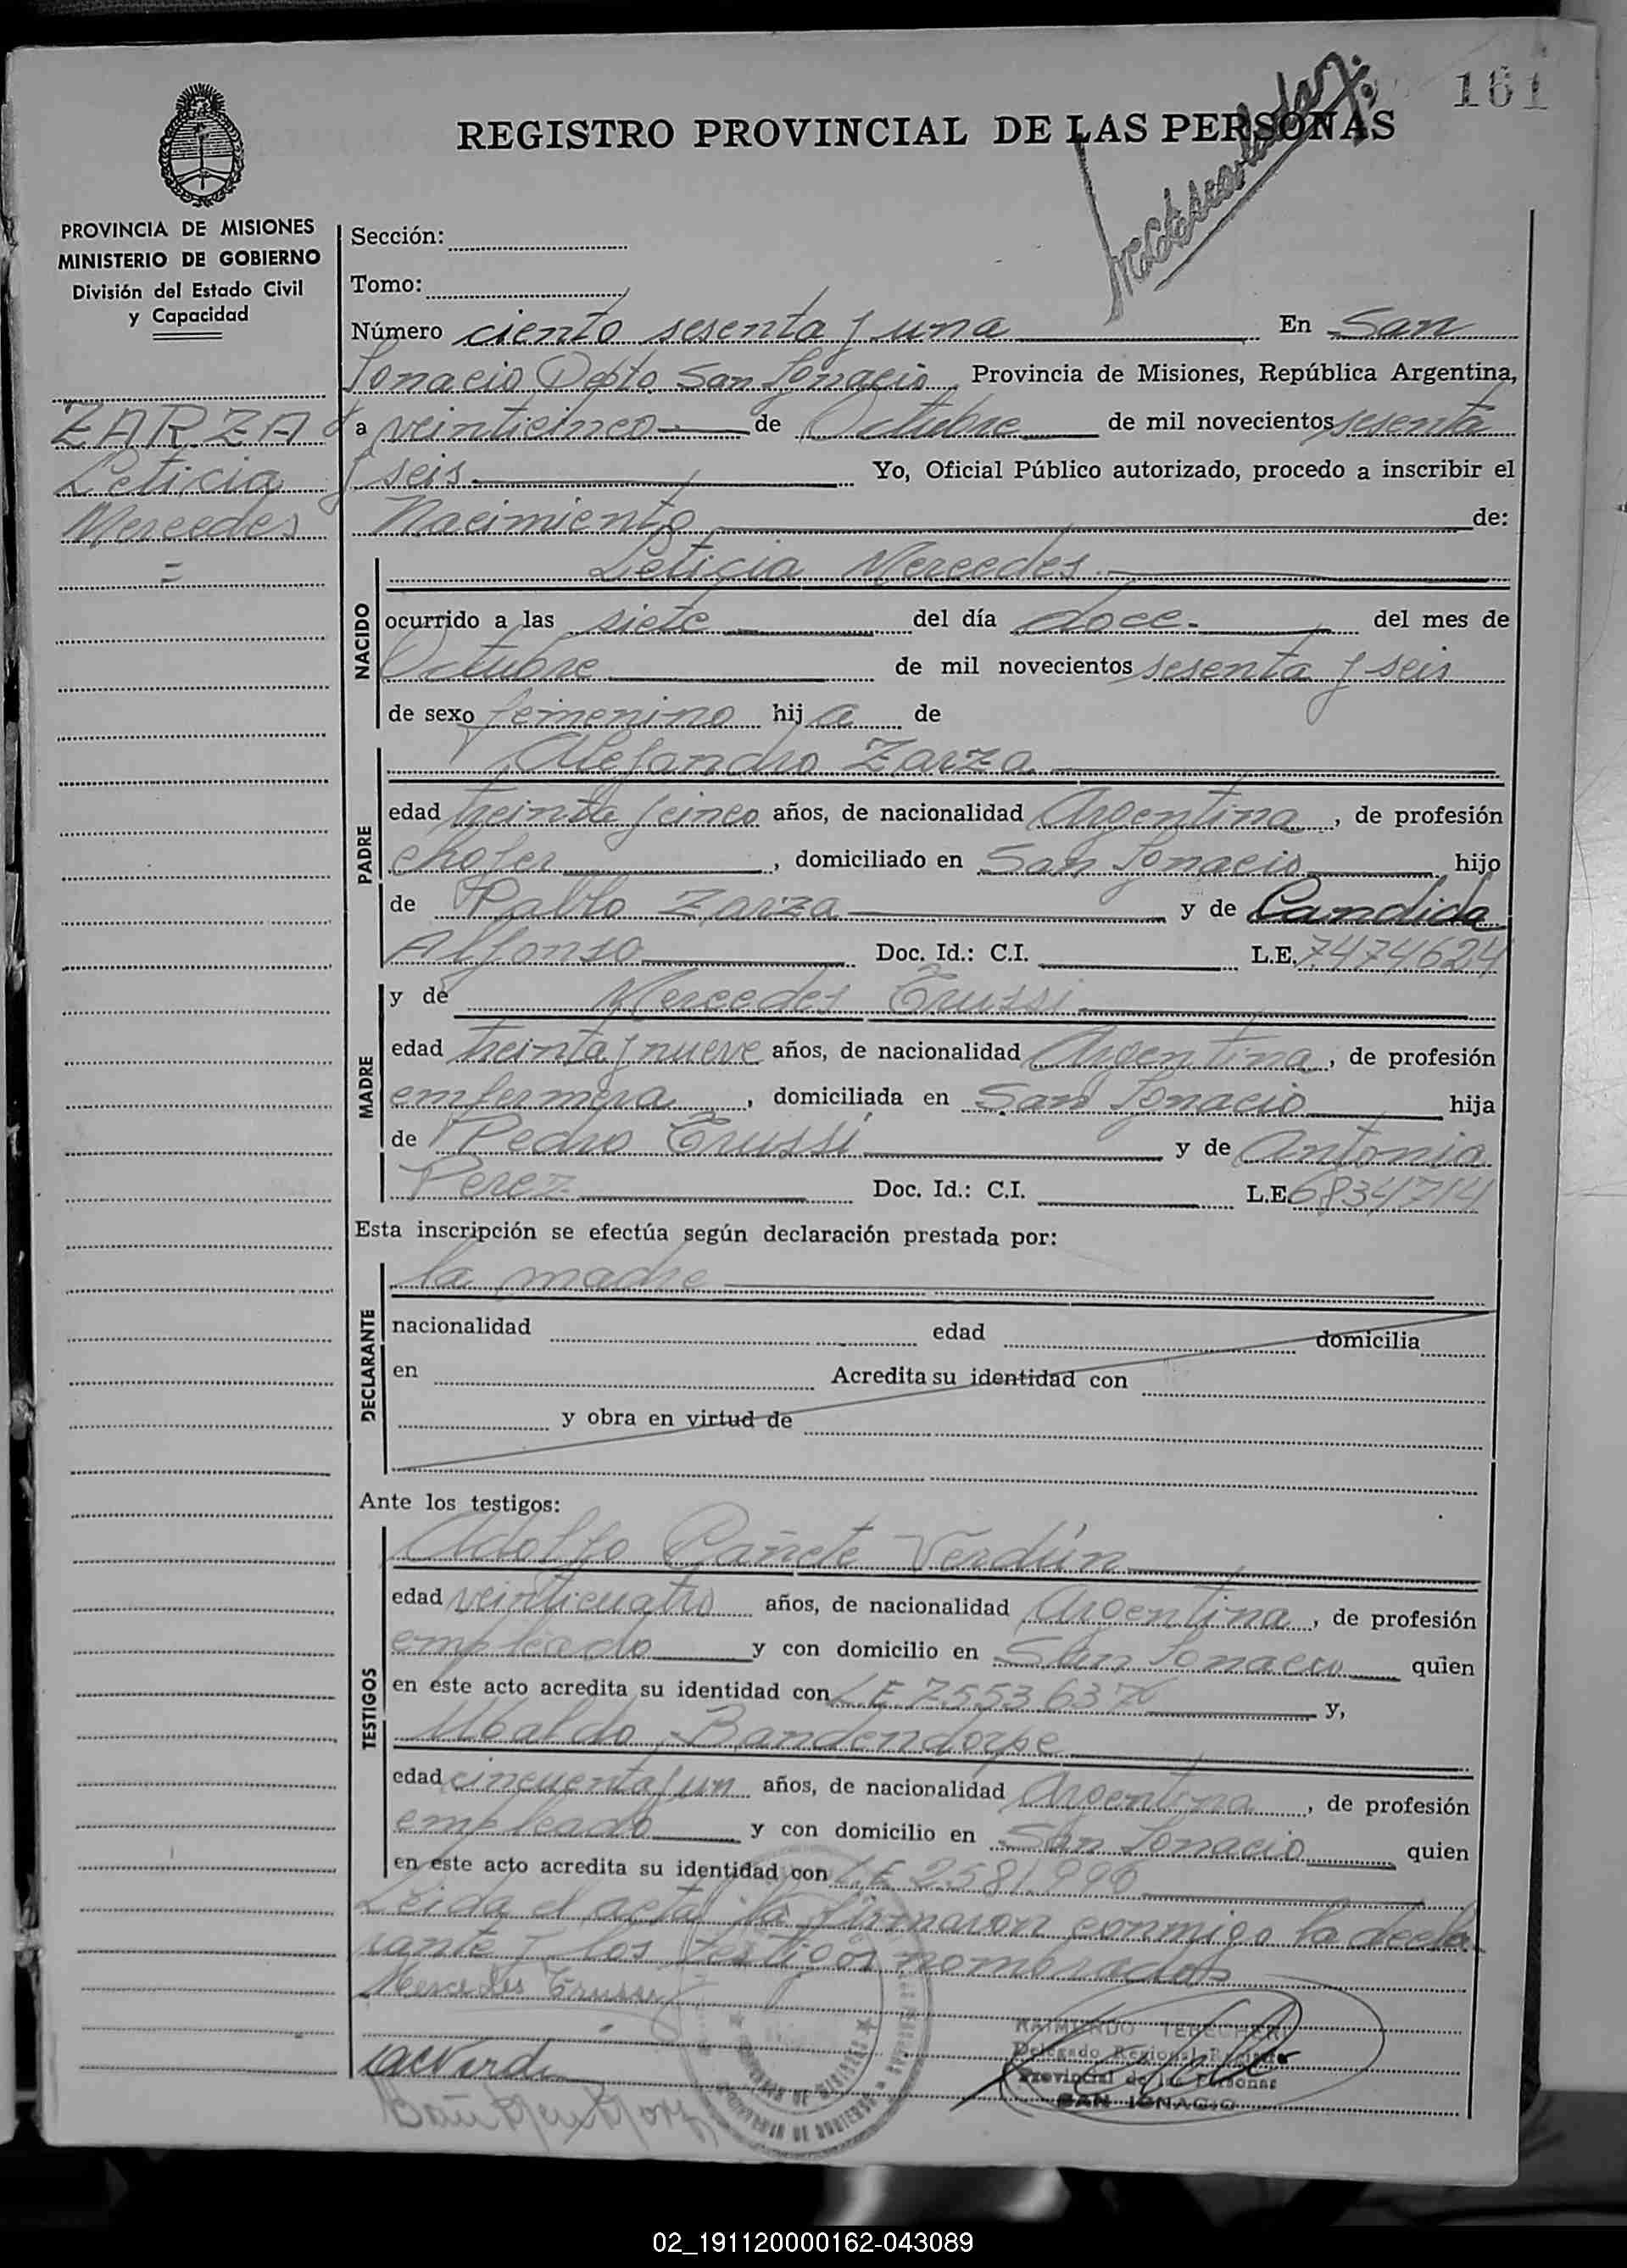 161
REGISTRO PROVINCIAL DE LAS PERSONAS
PROVINCIA DE MISIONES
MINISTERIO DE GOBIERNO
División del Estado Civil
y Capacidad
ZARZA
Leticia
Mercedes
Sección:
Tomo:
Número ciento sesenta y una En San
Ignacio Depto San Ignacio, Provincia de Misiones, República Argentina,
a veinticinco de Octubre de mil novecientos sesenta
y seis Yo, Oficial Público autorizado, procedo a inscribir el
Nacimiento de:
NACIDO
Leticia Mercedes
ocurrido a las siete del día doce del mes de
Octubre de mil novecientos sesenta y seis
de sexo femenino hija de
PADRE
Alejandro Zarza
edad treinta y cinco años, de nacionalidad Argentina, de profesión
chofer, domiciliado en San Ignacio hijo
de Pablo Zarza y de Candida
Alfonso Doc. Id.: C.I. L.E. 7474624
MADRE
y de Mercedes Trussi
edad treinta y nueve años, de nacionalidad Argentina, de profesión
enfermera, domiciliada en San Ignacio hija
de Pedro Trussi y de Antonia
Perez Doc. Id.: C.I. L.E. 6834714
Esta inscripción se efectúa según declaración prestada por:
DECLARANTE
la madre
nacionalidad edad domicilia
en Acredita su identidad con
y obra en virtud de
Ante los testigos:
TESTIGOS
Adolfo Cañete Verdún
edad veinticuatro años, de nacionalidad Argentina, de profesión
empleado y con domicilio en San Ignacio quien
en este acto acredita su identidad con L E 7553637 y,
Ubaldo Bandendorpe
edad cincuenta y un años, de nacionalidad Argentina, de profesión
empleado y con domicilio en San Ignacio quien
en este acto acredita su identidad con L.E 2581996
Leida el acta la firmaron conmigo la decla
rante y los testigos nombrados
Mercedes Trussi
RAIMUNDO
Delegado Regional Registro
Provincial de las Personas
SAN IGNACIO
02_191120000162-043089